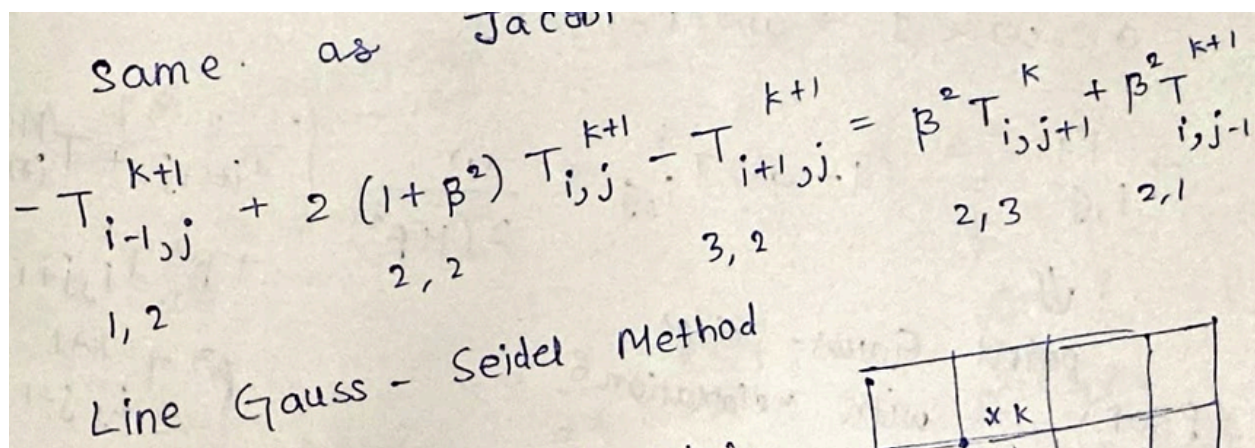 Same as Jacobi
- T_{i-1,j}^{k+1} + 2 (1+β²) T_{i,j}^{k+1} - T_{i+1,j}^{k+1} = β² T_{i,j+1}^{k} + β² T_{i,j-1}^{k+1}
1,2 2,2 3,2 2,3 2,1
Line Gauss - Seidel Method
x K